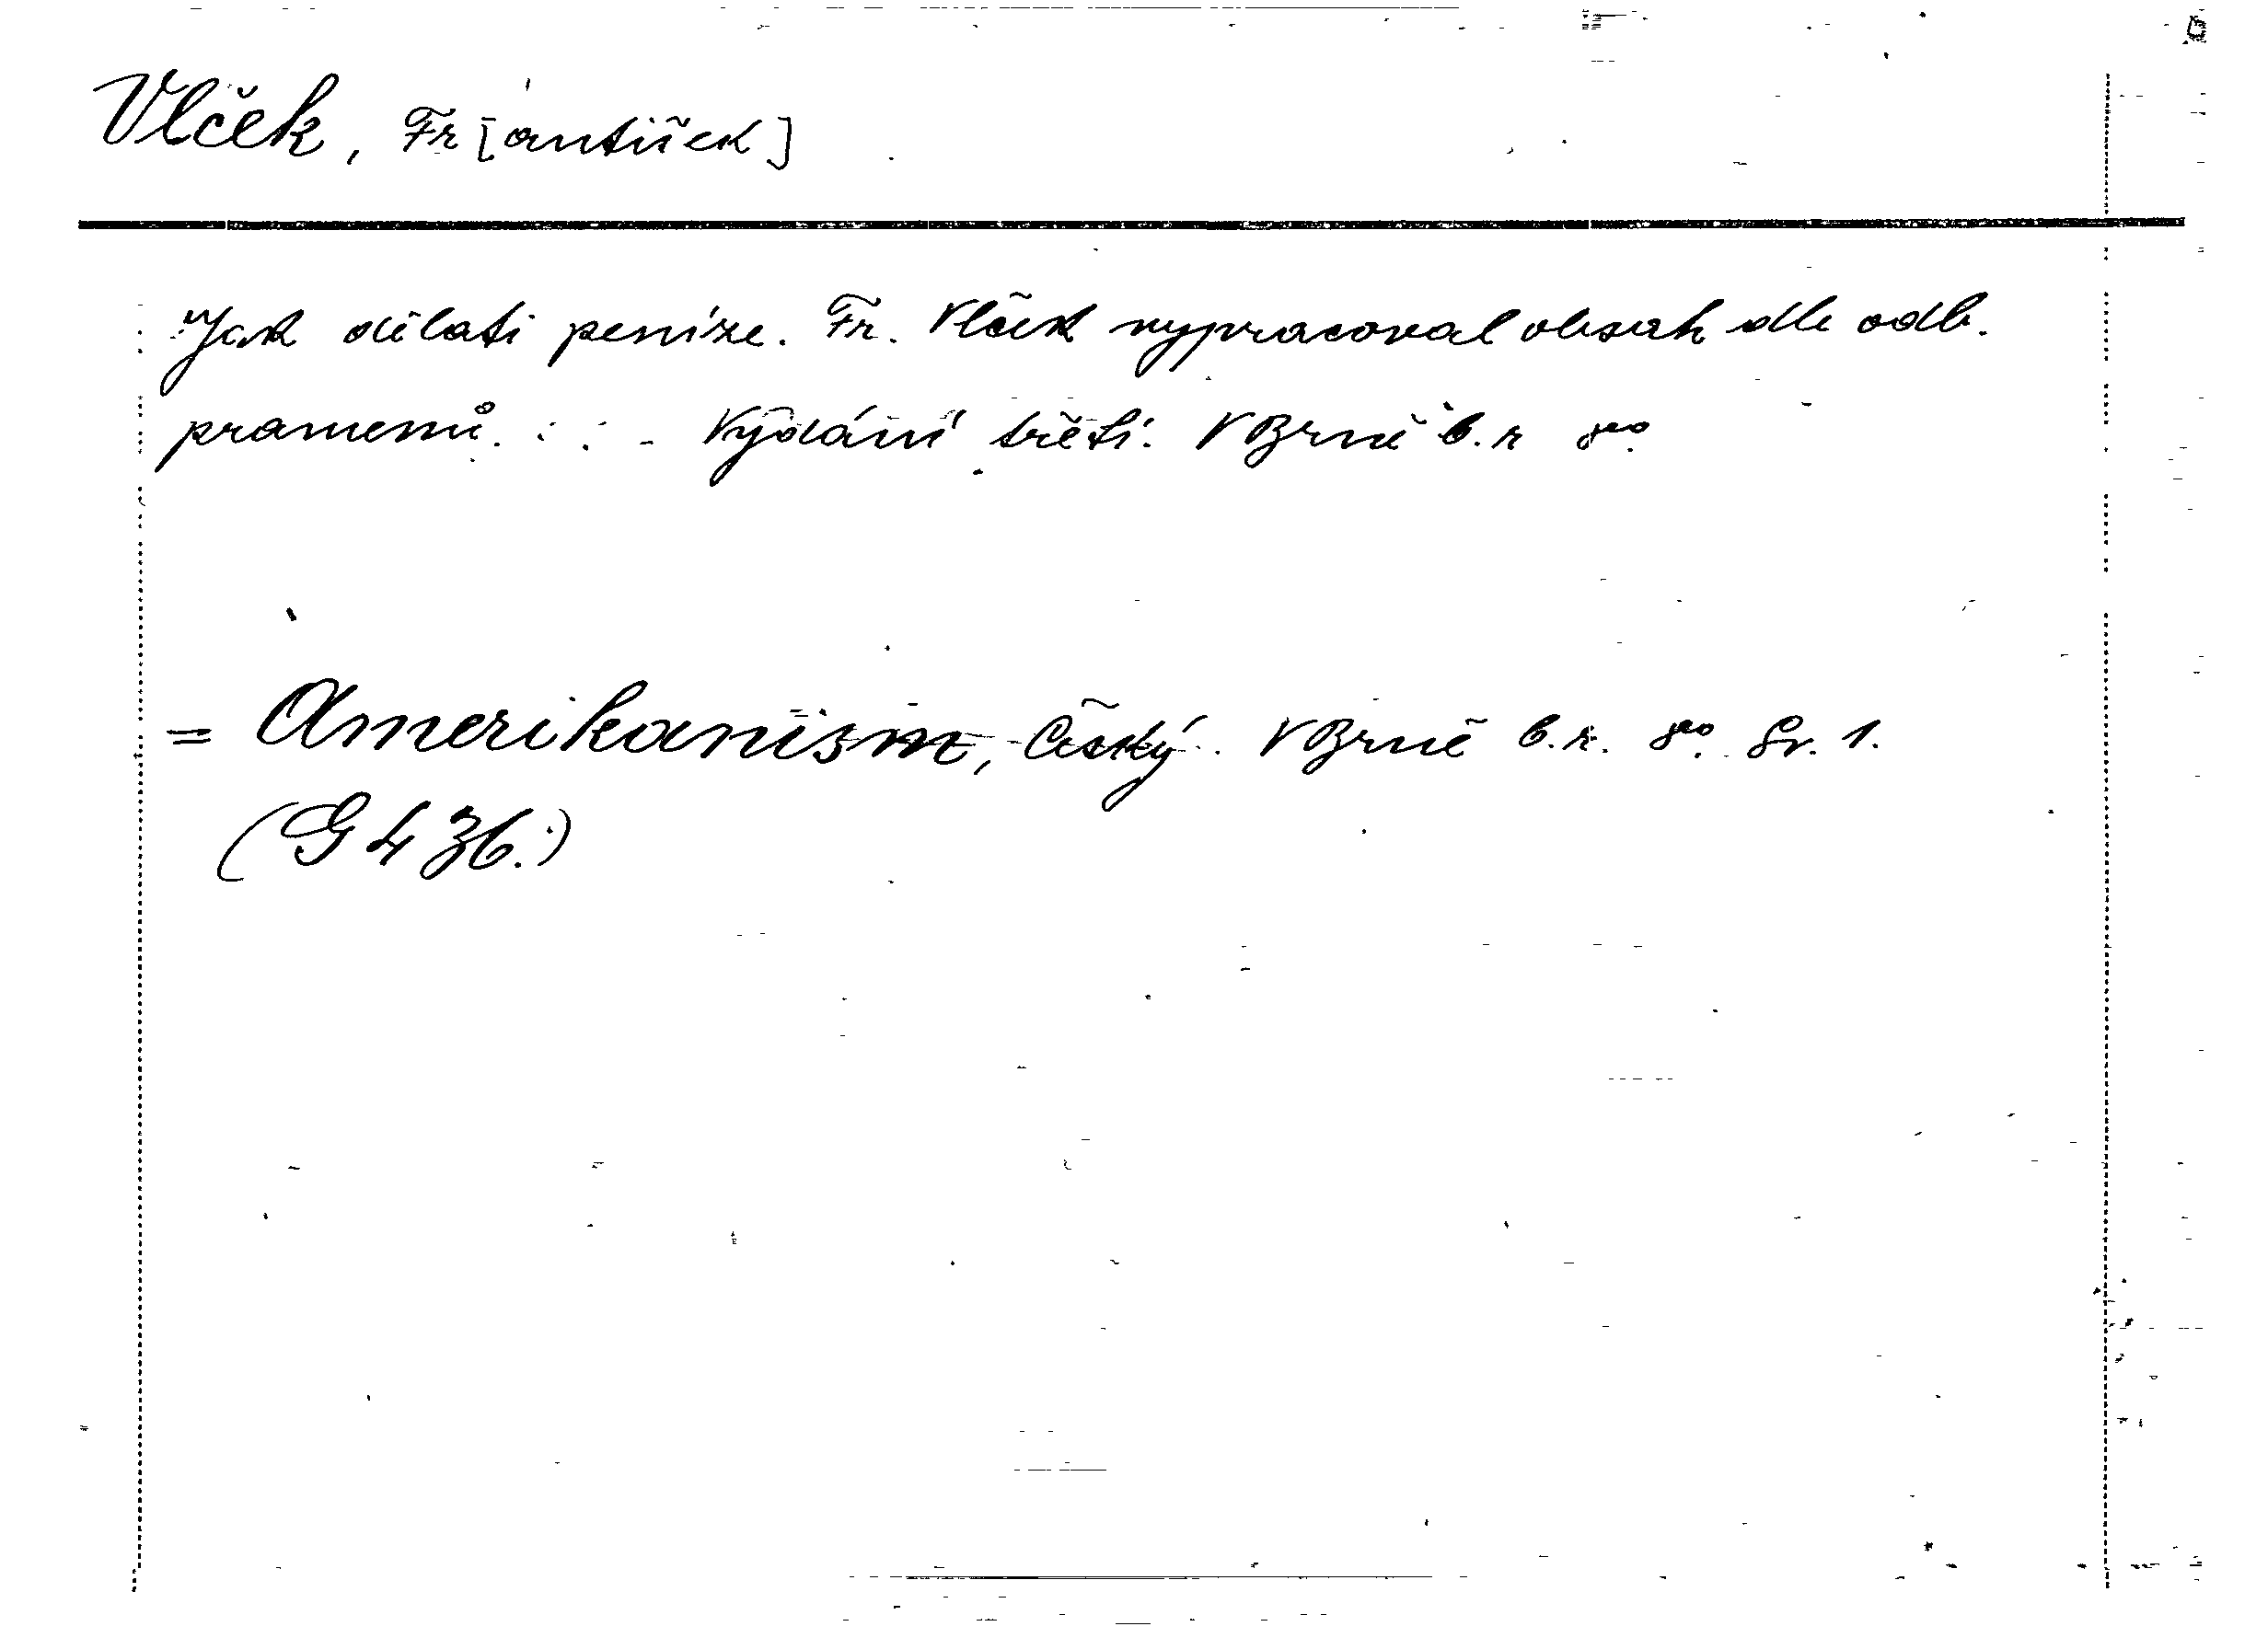 Vlček, Fr[antišek]
Jak dělati peníze. Fr. Vlček vypracoval obsah dle odb.
pramenů. : : - Vydání třetí. V Brně b. r 8°.
= Amerikanism, Český. V Brně b. r. 8°. Sv. 1.
(G 436.)